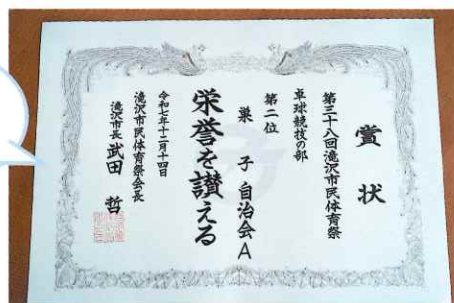 賞状
第三十八回滝沢市民体育祭
卓球競技の部
第二位
巣子自治会A
栄誉を讃える
令和七年十二月十四日
滝沢市民体育祭会長
滝沢市長 武田 哲